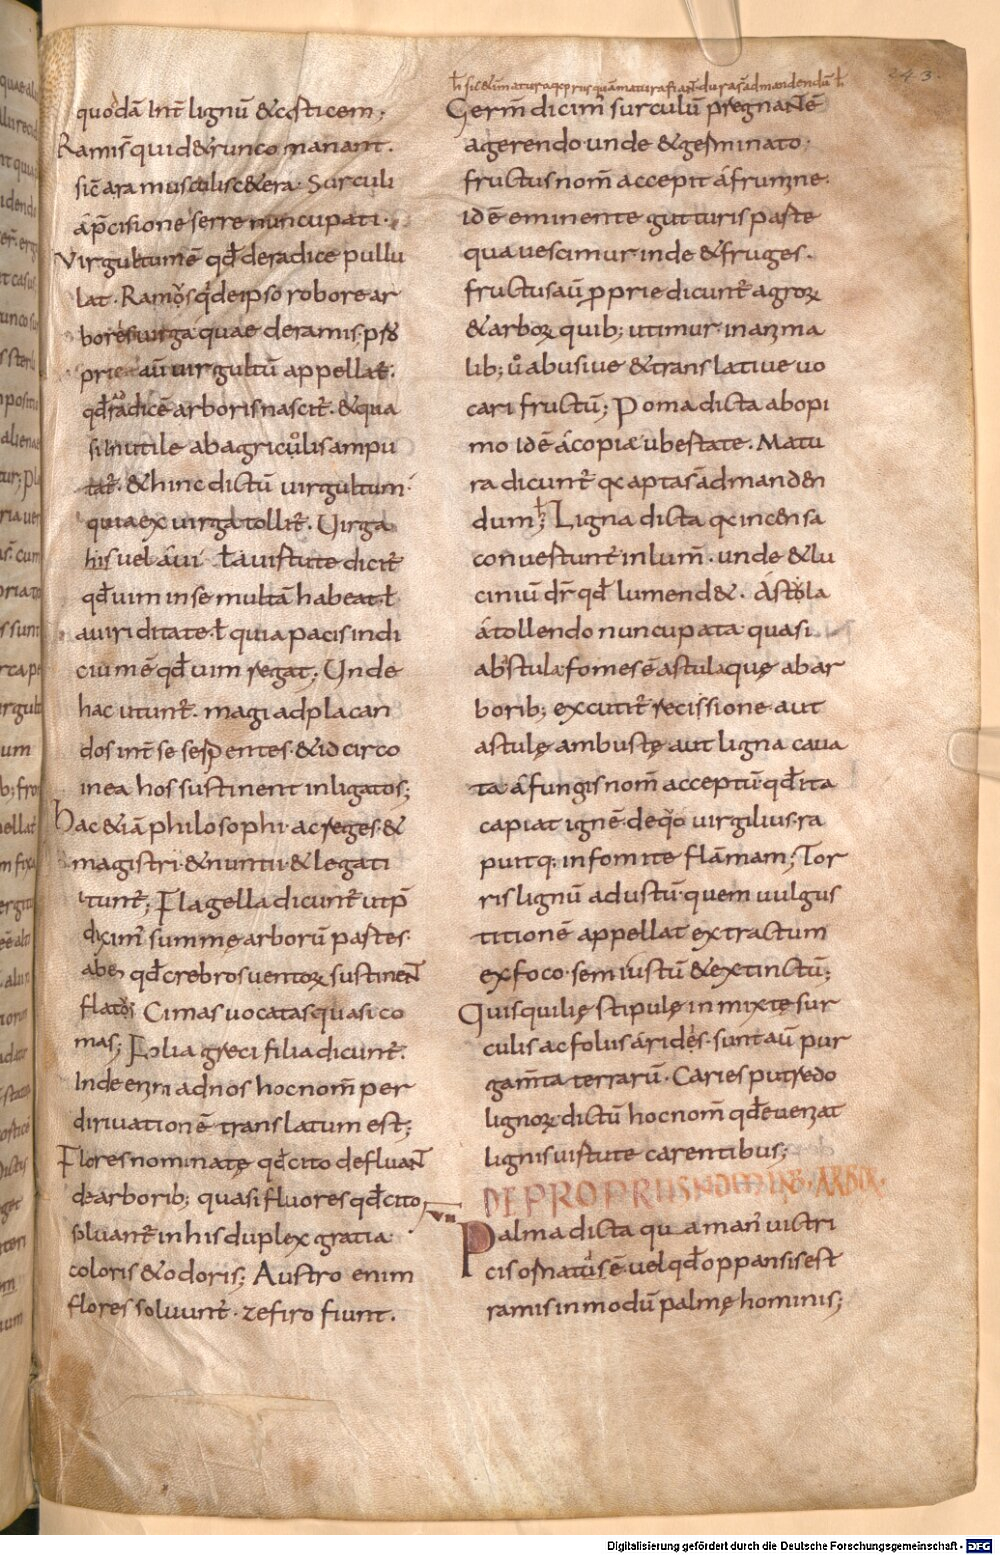 243.
ł sic̄ & inmatura qꝫ priusquā matura fiant dura s̄ ad mandendū ł
quodā int̄ lignū & corticem;
Ramis̄ qui de trunco manant.
sic̄ ara musculis cetera. Surculi
áp̄cisione serre nuncupati.
Virgultum ē qđ de radice pullu
lat. Ramos qđ de ipso robore ar
bores virga quae de ramis. pro
prie aūt virgultū appellat̄.
qđ radicē arboris nascit̄. & qua
si inutile ab agricolis ampu
tat̄. & hinc dictū virgultum
quia ex virga tollit̄. Virga
his vel a vi ł a virtute dicit̄
qđ uim in se multā habeat ł
a uiriditate ł quia pacis indi
cium ē qđ uim regat; Unde
hac utunt̄. magi ad placan
dos int̄ se serpentes. & idcirco
in ea hos sustinent inligatos;
Hac &iā philosophi. ac reges. &
magistri. & nuntii. & legati
utunt̄; Flagella dicunt̄ ut p̄
dixim̄ summę arborū partes.
abeo qđ crebros ventoꝝ sustinent
flatos Cimas uocatas quasi co
mas; Folia greci filia dicunt̄.
Inde enim ad nos hoc nom̄ per
dirivationē translatum est;
Flores nominatę qđ cito defluant
de arborib; quasi fluores qđ cito
soluant̄ in his duplex gratia
coloris & odoris; Austro enim
flores soluunt̄. zefiro fiunt.
Germ̄ dicim̄ surculū pregnantē
a gerendo unde & germinato.
fructus nom̄ accepit á frumine.
id ē eminente gutturis parte
qua vescimur. inde & fruges.
fructus aū proprie dicunt̄ agroꝝ
& arboꝝ quib; utimur. in anima
lib; ů abusive & translative vo
cari fructū; Poma dicta ab opi
mo id ē á copiæ ubertate. Matu
ra dicunt̄ qꝫ apta s̄ ad manden
dum; ł Ligna dicta qꝫ incensa
convertunt̄ in lum̄. unde & lu
ciniū dr̄ qđ lumen d&. Astola
á tollendo nuncupata quasi
abstula. fomes ē astula quę ab ar
borib; excutit̄ recissione aut
astulę ambustę aut ligna cava
ta á fungis nom̄ acceptū qđ ita
capiat ignē. de qo virgilius. ra
puitq; in fomite flāmam; Tor
ris lignū adustū quem vulgus
titionē appellat extractum
ex foco semiustū & extinctū;
Quisquilię stipulę inmixtę sur
culis ac folus áridis. sunt aū pur
gam̄ta terrarū. Caries putredo
lignoꝝ dictū hoc nom̄ qđ evenīat
lignis virtute carentibus;
DE PROPRIIS NOMINIB. ARBOR.
Palma dicta qua man̄ victri
cis ornatus ē. vel qđ oppansis est
ramis in modū palmę hominis;
Digitalisierung gefördert durch die Deutsche Forschungsgemeinschaft - DFG